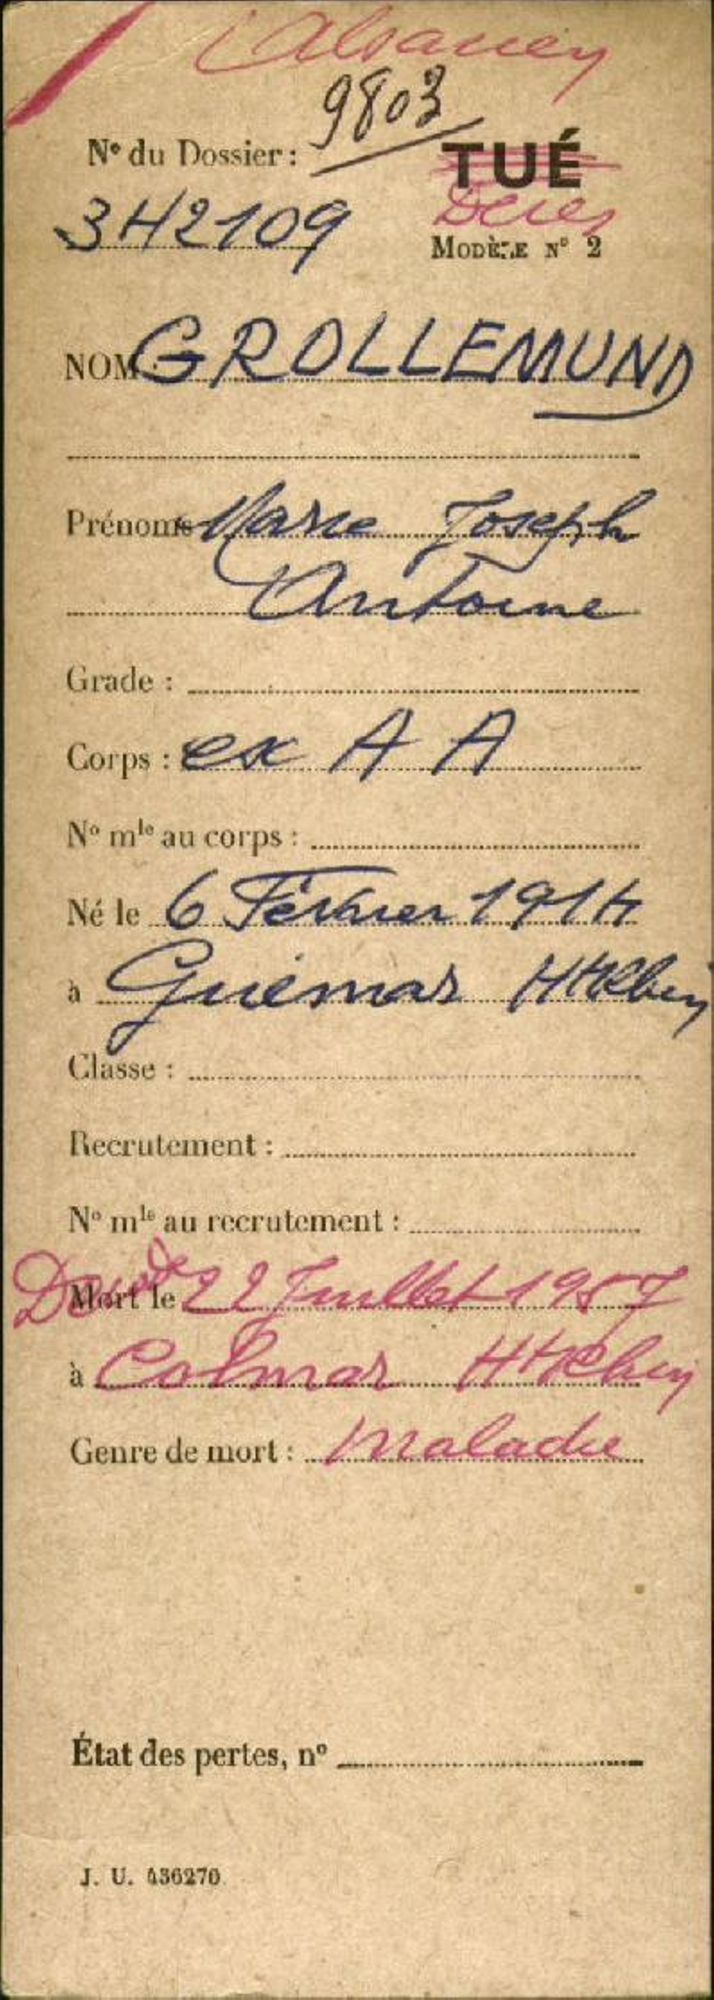 9803
N° du Dossier :
TUÉ
3H2109
Deces
MODÈLE N° 2
NOM GROLLEMUND
Prénoms Marie Joseph
Antoine
Grade :
Corps : ex A A
N° mle au corps :
Né le 6 Février 1914
à Guémar Ht Rhin
Classe :
Recrutement :
N° mle au recrutement :
Mort le 22 Juillet 1957
à Colmar Ht Rhin
Genre de mort : Maladie
État des pertes, n°
J. U. 436270